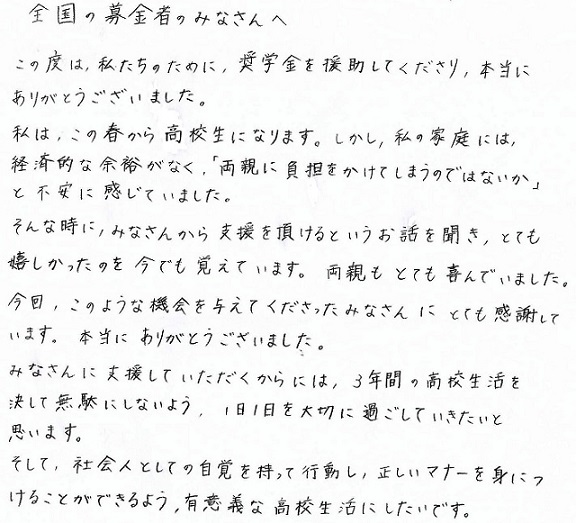 全国の募金者のみなさんへ
この度は、私たちのために、奨学金を援助してくださり、本当に
ありがとうございました。
私は、この春から高校生になります。しかし、私の家庭には、
経済的な余裕がなく、「両親に負担をかけてしまうのではないか」
と不安に感じていました。
そんな時に、みなさんから支援を頂けるというお話を聞き、とても
嬉しかったのを今でも覚えています。両親もとても喜んでいました。
今回、このような機会を与えてくださったみなさんにとても感謝して
います。本当にありがとうございました。
みなさんに支援していただくからには、3年間の高校生活を
決して無駄にしないよう、1日1日を大切に過ごしていきたいと
思います。
そして、社会人としての自覚を持って行動し、正しいマナーを身につ
けることができるよう、有意義な高校生活にしたいです。